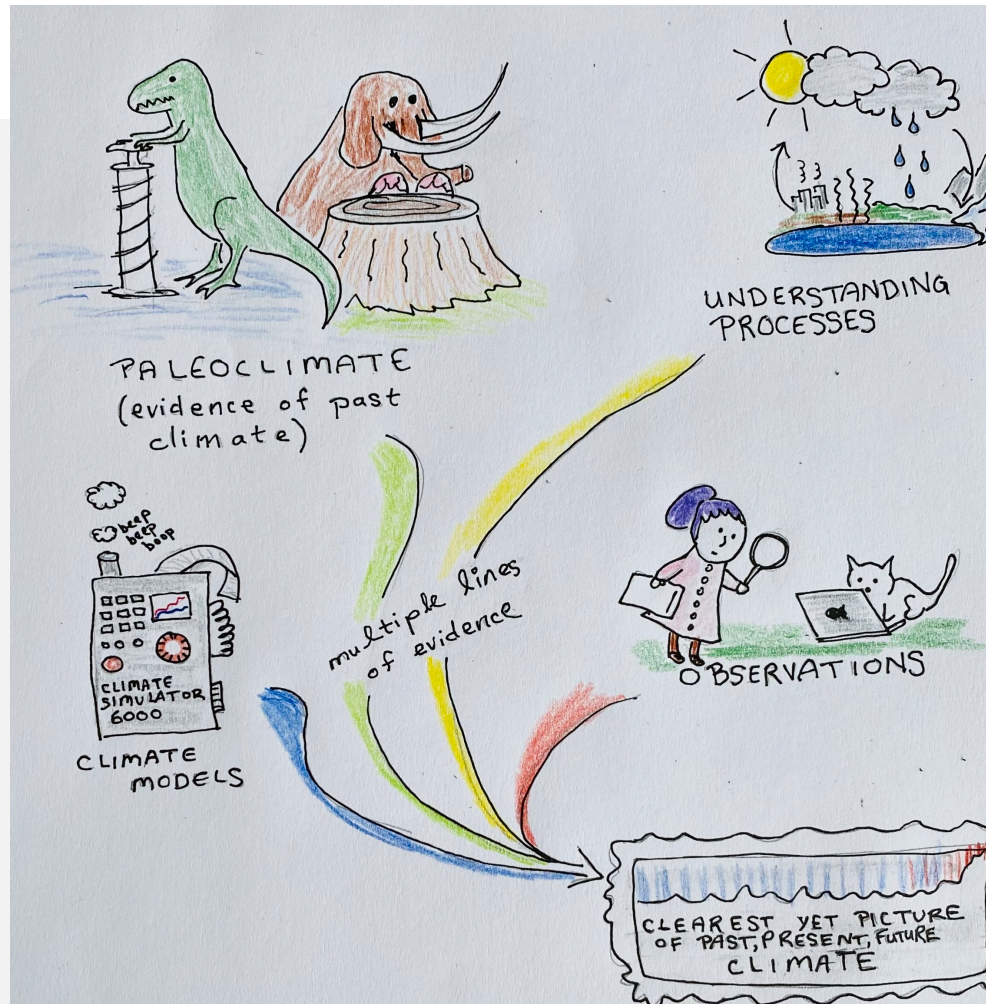 PALEOCLIMATE
(evidence of past
climate)
UNDERSTANDING
PROCESSES
beep
beep
boop
CLIMATE
SIMULATOR
6000
CLIMATE
MODELS
multiple lines
of evidence
OBSERVATIONS
CLEAREST YET PICTURE
OF PAST, PRESENT, FUTURE
CLIMATE